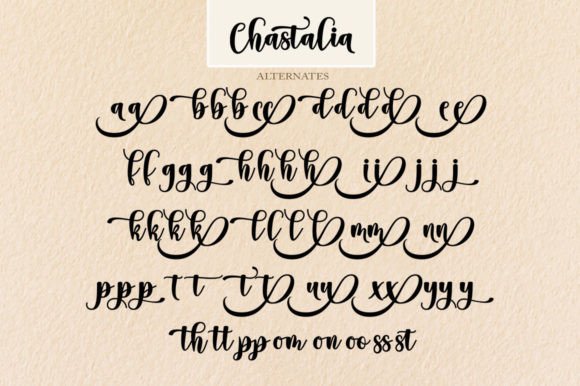 Chastalia
ALTERNATES
aa bbb cc dddd ee
ff ggg hhhh ii jjj
kkkk llll mm nn
ppp tt tt uu xx yyy
th tt pp om on oo ss st